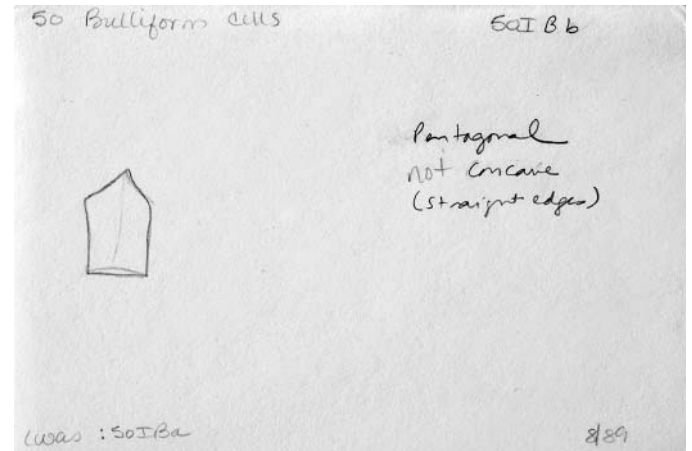 50 Bulliform cells
50I B b
Pentagonal
not concave
(straight edges)
(was : 50IBa
8/89